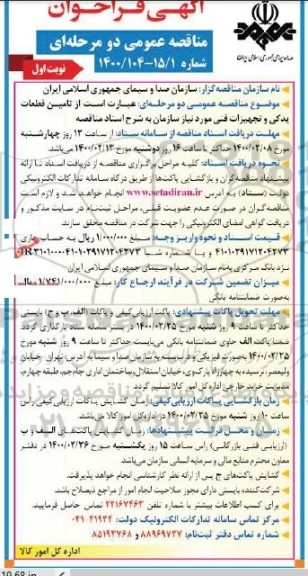 آگهی فراخوان
مناقصه عمومی دو مرحله‌ای
شماره ۱۴۰۰/۱۰۴-۱۵/۱
نوبت اول
نام سازمان مناقصه‌گزار: سازمان صدا و سیمای جمهوری اسلامی ایران
موضوع مناقصه عمومی دو مرحله‌ای: عبارت است از تامین قطعات
یدکی و تجهیزات فنی مورد نیاز سازمان به شرح اسناد مناقصه
مهلت دریافت اسناد مناقصه از سامانه ستاد: از ساعت ۱۳ روز چهارشنبه
مورخ ۱۴۰۰/۰۲/۰۸ حداکثر تا ساعت ۱۶ روز دوشنبه مورخ ۱۴۰۰/۰۲/۱۳ می‌باشد.
نحوه دریافت اسناد: کلیه مراحل برگزاری مناقصه از دریافت اسناد تا ارائه
پیشنهاد مناقصه‌گران و بازگشایی پاکت‌ها از طریق درگاه سامانه تدارکات الکترونیکی
دولت (ستاد) به آدرس www.setadiran.ir انجام خواهد شد و لازم است
مناقصه‌گران در صورت عدم عضویت قبلی، مراحل ثبت‌نام در سایت مذکور و
دریافت گواهی امضای الکترونیکی را جهت شرکت در مناقصه محقق سازند.
قیمت اسناد و نحوه واریز وجه: مبلغ ۱/۰۰۰/۰۰۰ ریال به حساب جاری
نزد بانک مرکزی به‌نام سازمان صدا و سیمای جمهوری اسلامی ایران
میزان تضمین شرکت در فرآیند ارجاع کار: مبلغ ۱/۷۴۱/۰۰۰/۰۰۰ ریال
به‌صورت ضمانتنامه بانکی
مهلت تحویل پاکات پیشنهادی: پاکت ارزیابی کیفی و پاکات (الف، ب و ج) بایستی
حداکثر تا ساعت ۹ روز شنبه مورخ ۱۴۰۰/۰۲/۲۵ در بستر سامانه ستاد بارگذاری گردد.
ضمنا پاکت الف حاوی ضمانتنامه بانکی می‌بایست حداکثر تا ساعت ۹ روز شنبه مورخ
۱۴۰۰/۰۲/۲۵ به‌صورت فیزیکی و لاک‌شده به سازمان صدا و سیما به آدرس تهران خیابان
ولیعصر، نرسیده به چهارراه پارک‌وی، خیابان استقلال، ساختمان اداری جام‌جم، طبقه چهارم،
مدیریت خرید خارجی اداره کل امور کالا تسلیم گردد.
زمان بازگشایی پاکات ارزیابی کیفی: زمان گشایش پاکات ارزیابی کیفی راس
ساعت ۱۰ روز شنبه مورخ ۱۴۰۰/۰۲/۲۵ در اداره کل امور کالا می‌باشد.
زمان و محل قرائت پیشنهادها: پاکت الف و ب
(ارزیابی فنی بازرگانی) راس ساعت ۱۵ روز یکشنبه مورخ ۱۴۰۰/۰۲/۲۶ در دفتر
معاون محترم منابع مالی و سرمایه انسانی سازمان می‌باشد.
گشایش پاکت‌های ج پس از ارائه نظر کارشناسی انجام خواهد پذیرفت.
شرکت‌کننده بایستی دارای مجوز صلاحیت انجام امور از مراجع ذیصلاح باشد.
برای کسب اطلاعات بیشتر با شماره تلفن ۲۲۱۶۷۴۶۳ تماس حاصل فرمایید.
مرکز تماس سامانه تدارکات الکترونیک دولت: ۰۲۱-۴۱۹۳۴
شماره تماس دفتر ثبت‌نام: ۸۸۹۶۹۷۳۷ و ۸۵۱۹۳۷۶۸
اداره کل امور کالا